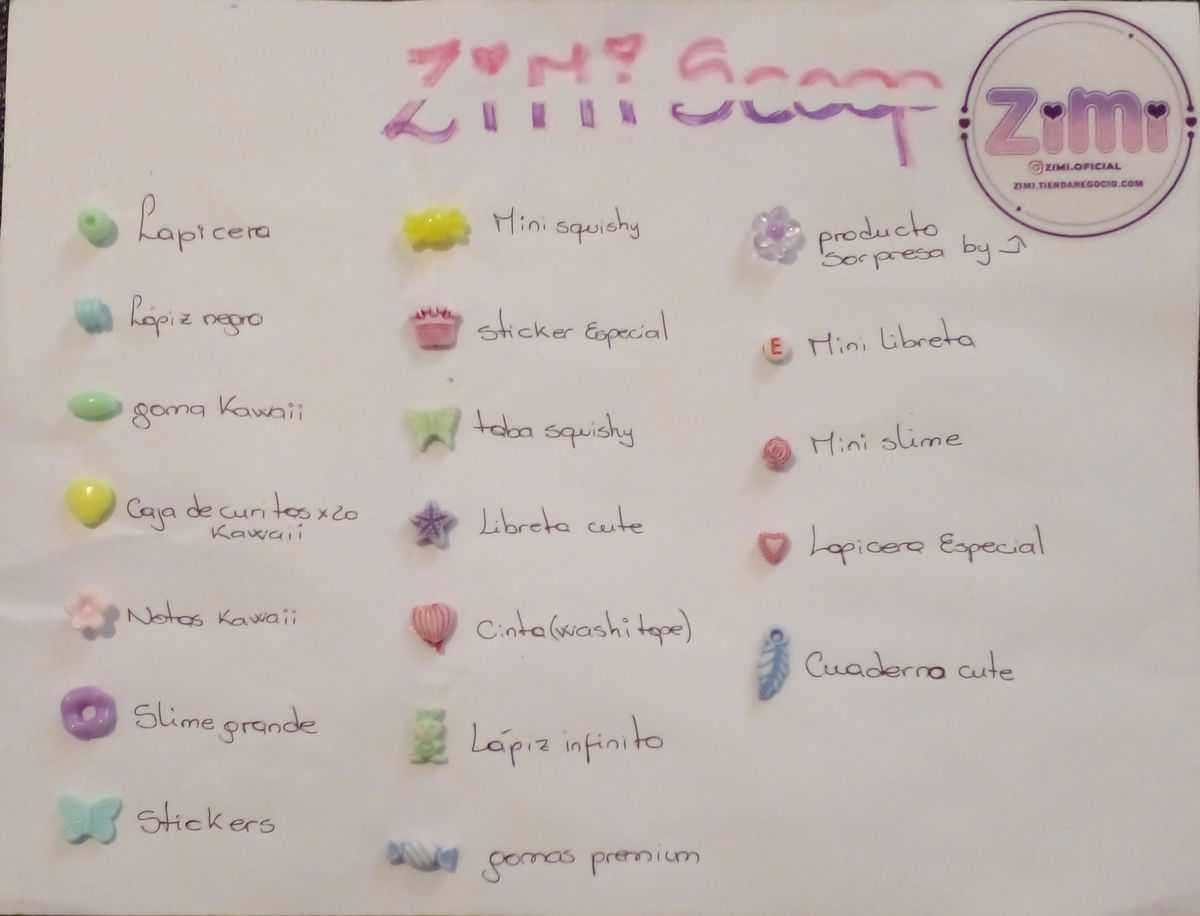 Zimi Scoop
Zimi
ZIMI.OFICIAL
ZIMI.TIENDANEGOCIO.COM
Lapicera
Lápiz negro
goma Kawaii
Caja de curitas x20
Kawaii
Notas Kawaii
Slime grande
Stickers
Mini squishy
Sticker Especial
taba squishy
Libreta cute
Cinta (washi tape)
Lápiz infinito
gomas premium
producto
Sorpresa by
E
Mini Libreta
Mini slime
Lapicera Especial
Cuaderno cute